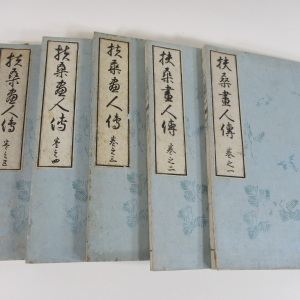 扶桑畫人傳 卷之一
扶桑畫人傳 卷之二
扶桑畫人傳 卷之三
扶桑畫人傳 卷之四
扶桑畫人傳 卷之五